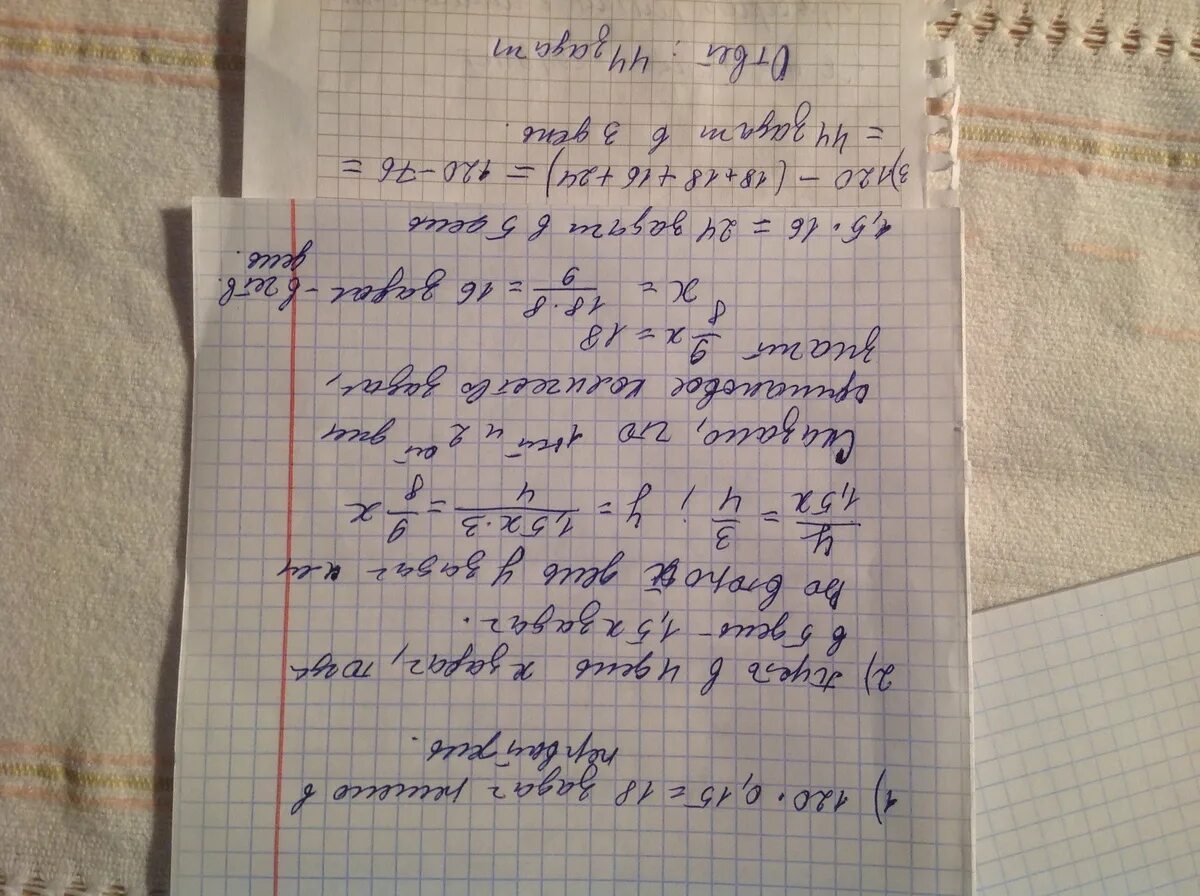 1) 120 · 0,15 = 18 задач решено в
первый день.
2) Пусть в 4 день x задач, тогда
в 5 день - 1,5x задач.
Во второй день y задач или
y/1,5x = 3/4 ; y = 1,5x·3/4 = 9/8 x
Сказано, что 1ый и 2ой дни
одинаковое количество задач,
значит 9/8 x = 18
x = 18·8/9 = 16 задач - в четв.
день.
1,5 · 16 = 24 задач в 5 день
3) 120 - (18+18+16+24) = 120-76 =
= 44 задач в 3 день.
Ответ: 44 задач